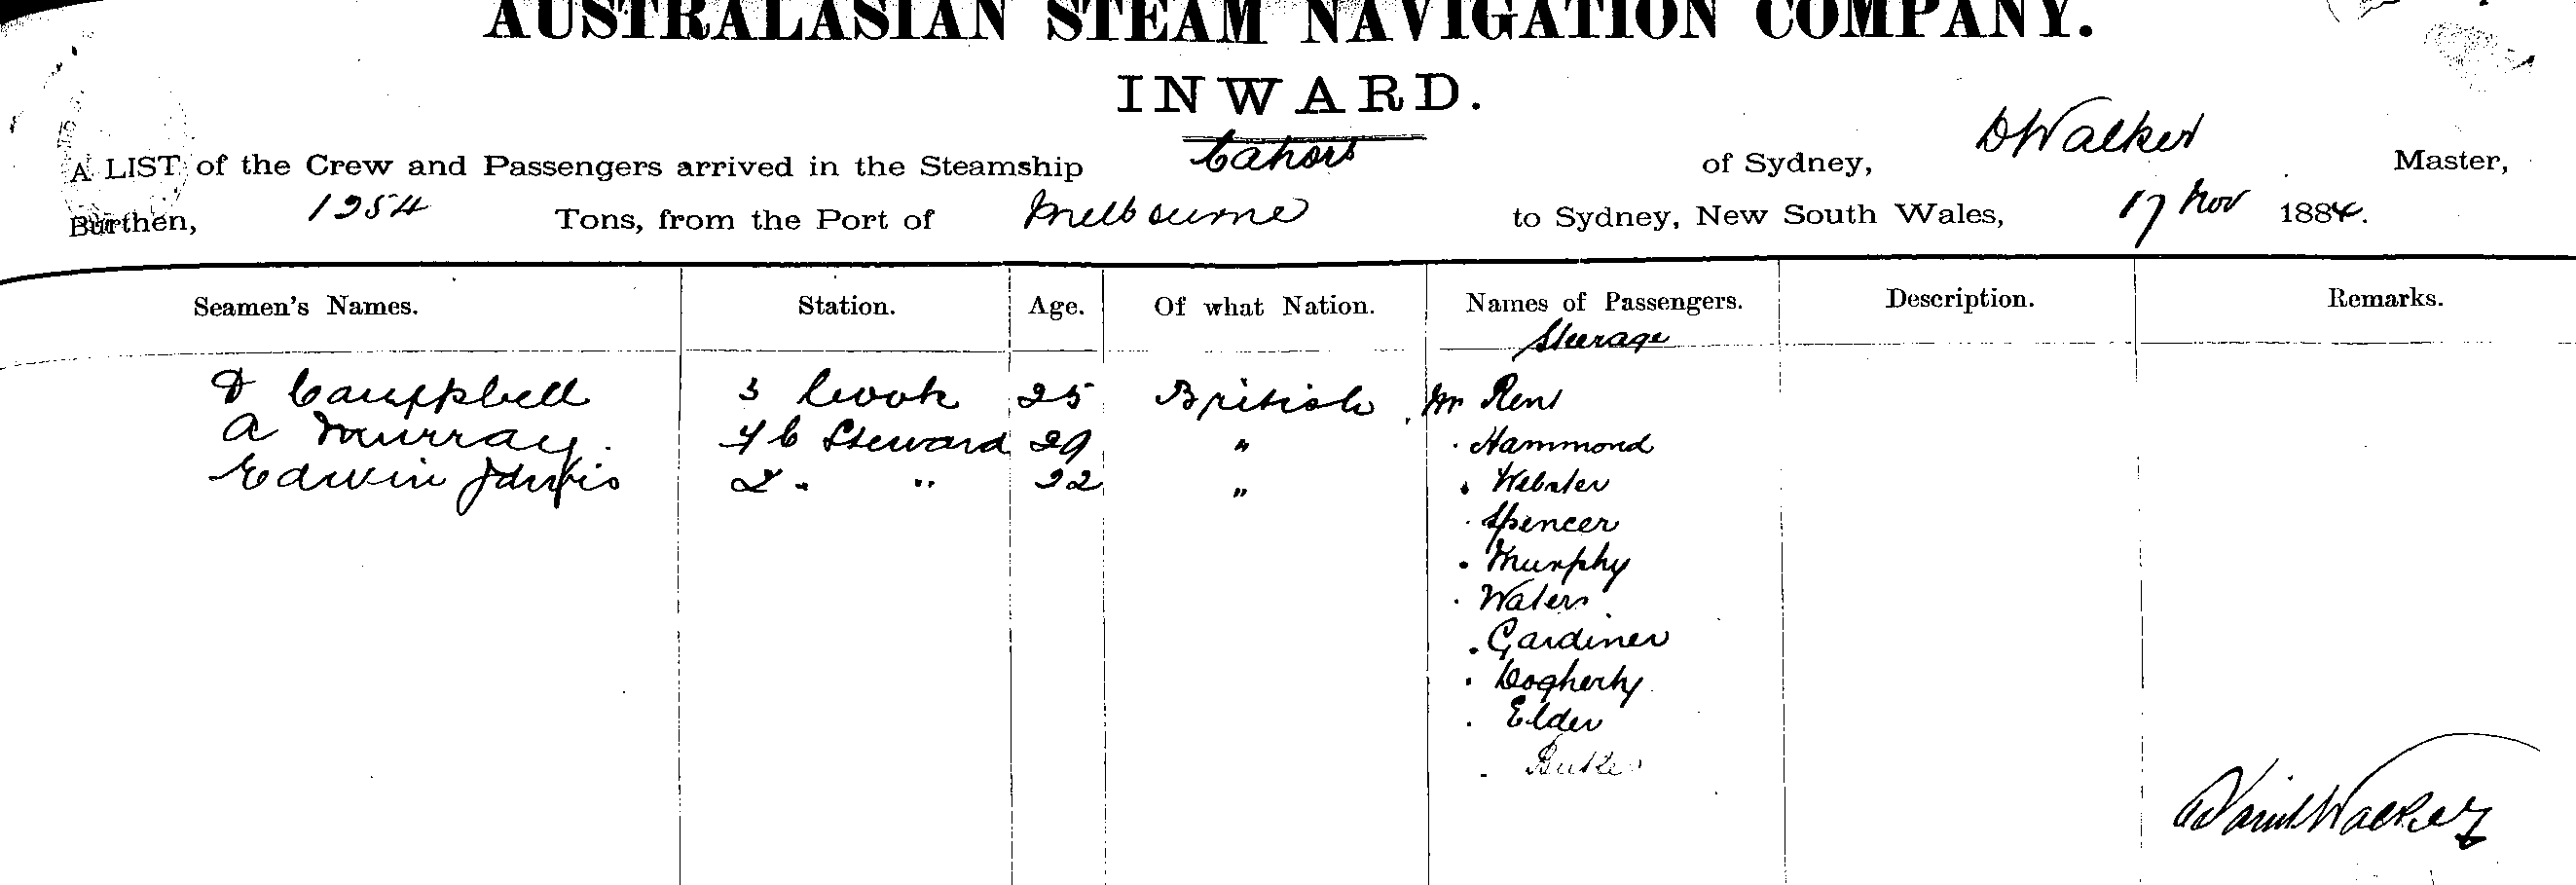 AUSTRALASIAN STEAM NAVIGATION COMPANY.
INWARD.
A LIST of the Crew and Passengers arrived in the Steamship Cahors of Sydney, D Walker Master,
Burthen, 1254 Tons, from the Port of Melbourne to Sydney, New South Wales, 17 Nov 1884.
Seamen's Names. Station. Age. Of what Nation. Names of Passengers. Description. Remarks.
Steerage
D Campbell 3 Cook 25 British Mr
A Murray. Steward 29 " . Hammond
Edwin Jarvis 2 " " 22 " . Webster
. Spencer
. Murphy
. Waters
. Gardiner
. Dogherty
. Elder
Daniel Walker